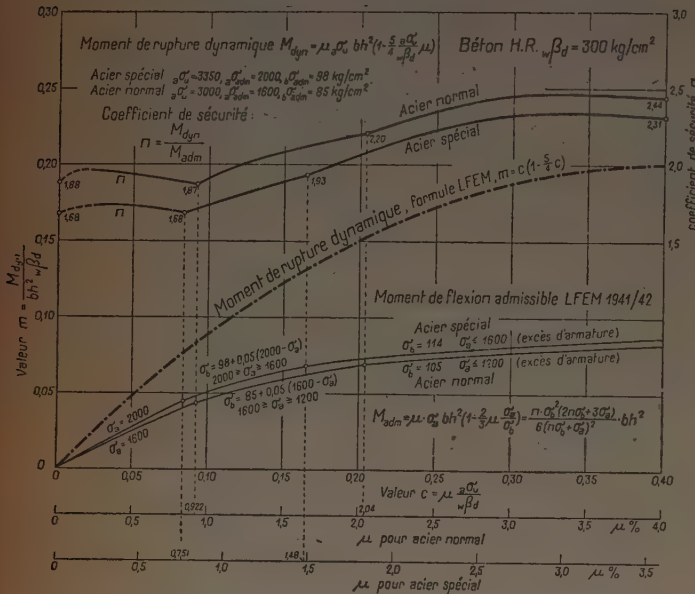 0,30
0,25
0,20
0,15
0,10
0,05
0
Valeur m = Mdyn / bh² wβd
3,0
2,5
2,0
1,5
coefficient de sécurité n
Moment de rupture dynamique Mdyn = μ aσu bh² (1 - 5/4 aσu/wβd μ)
Béton H.R. wβd = 300 kg/cm²
Acier spécial aσu = 3350, aσadm = 2000, bσadm = 98 kg/cm²
Acier normal aσu = 3000, aσadm = 1600, bσadm = 85 kg/cm²
Coefficient de sécurité:
n = Mdyn / Madm
Acier normal
Acier spécial
2,44
2,31
2,20
1,93
1,88
n
1,87
1,68
n
1,68
Moment de rupture dynamique, formule LFEM, m = c(1 - 5/4 c)
Moment de flexion admissible LFEM 1941/42
Acier spécial
σb = 114 σa ≤ 1600 (excès d'armature)
σb = 105 σa ≤ 1200 (excès d'armature)
Acier normal
σb = 98 + 0,05 (2000 - σa)
2000 > σa ≥ 1600
σb = 85 + 0,05 (1600 - σa)
1600 ≥ σa ≥ 1200
σa = 2000
σa = 1600
Madm = μ · σa bh² (1 - 2/3 μ σa/σb) = n · σb² (2nσb + 3σa) / 6(nσb + σa)² · bh²
0,05 0,10 0,15 0,20 0,25 0,30 0,35 0,40
Valeur c = μ aσu / wβd
0,922
2,04
0 0,5 1,0 1,5 2,0 2,5 3,0 μ% 4,0
μ pour acier normal
0,751
1,48
0 0,5 1,5 2,0 2,5 3,0 μ% 3,5
μ pour acier spécial